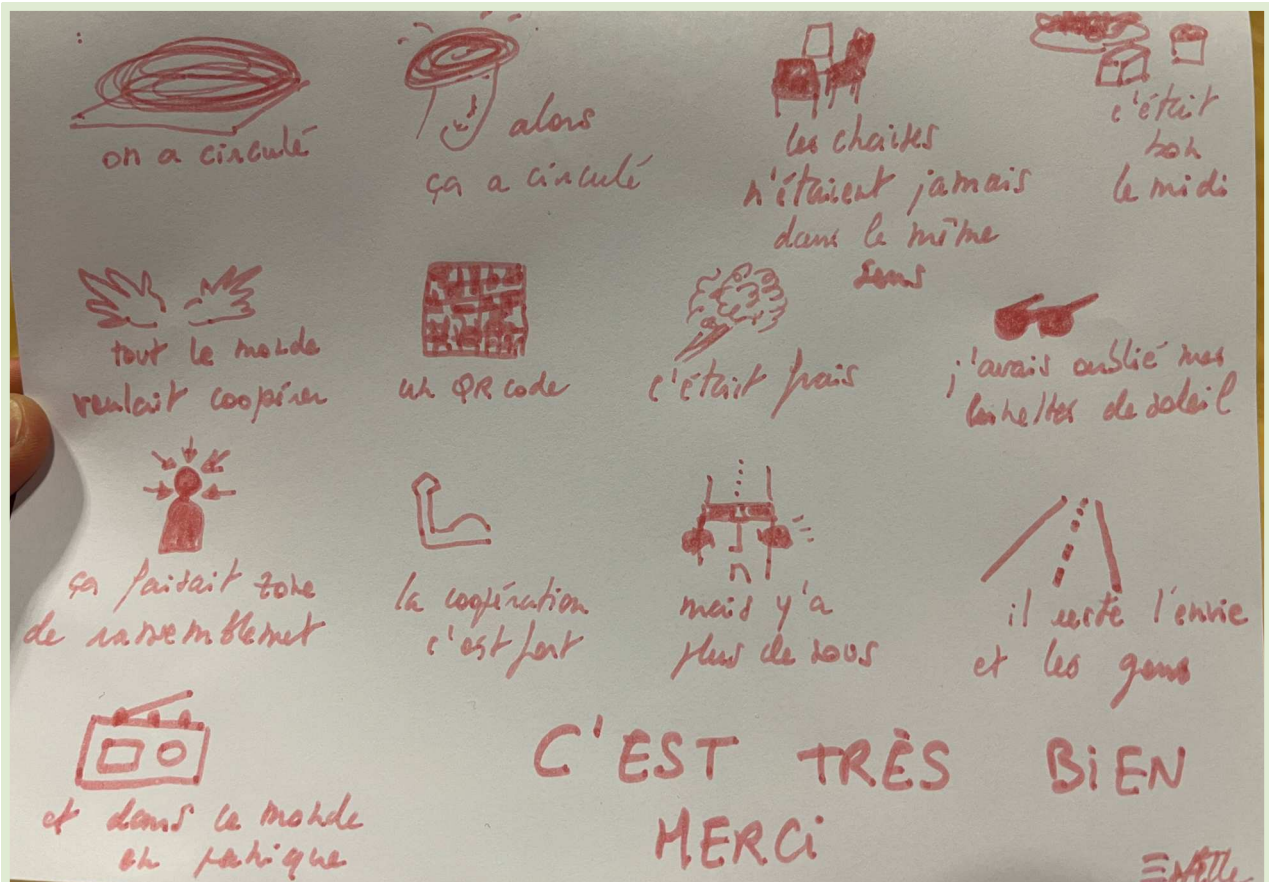 on a circulé
alors
ça a circulé
les chaises
n'étaient jamais
dans le même
sens
c'était
bon
le midi
tout le monde
voulait coopérer
un QR code
c'était frais
j'avais oublié mes
lunettes de soleil
ça faisait zone
de rassemblemet
la coopération
c'est fort
mais y'a
plus de sous
il reste l'envie
et les gens
et dans ce monde
en panique
C'EST TRÈS BiEN
MERCi
Estelle